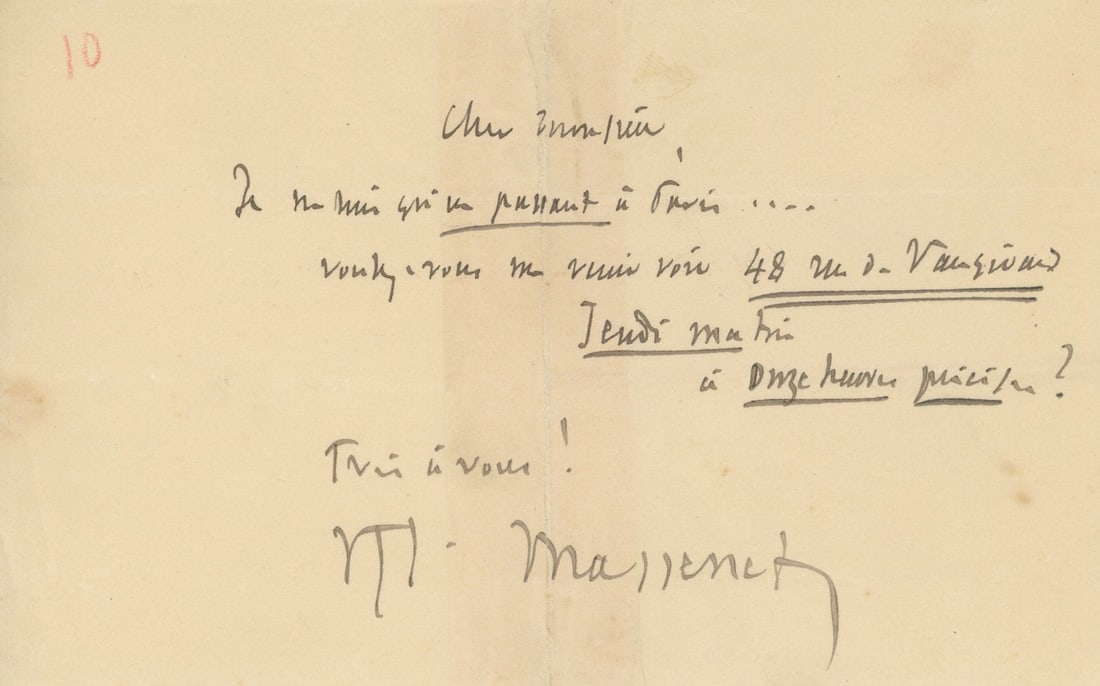 10
Cher monsieur,
Je ne suis qu'en passant à Paris ....
voulez-vous me venir voir 48 rue de Vaugirard
Jeudi matin
à Onze heures précises ?
Très à vous !
M. Massenet